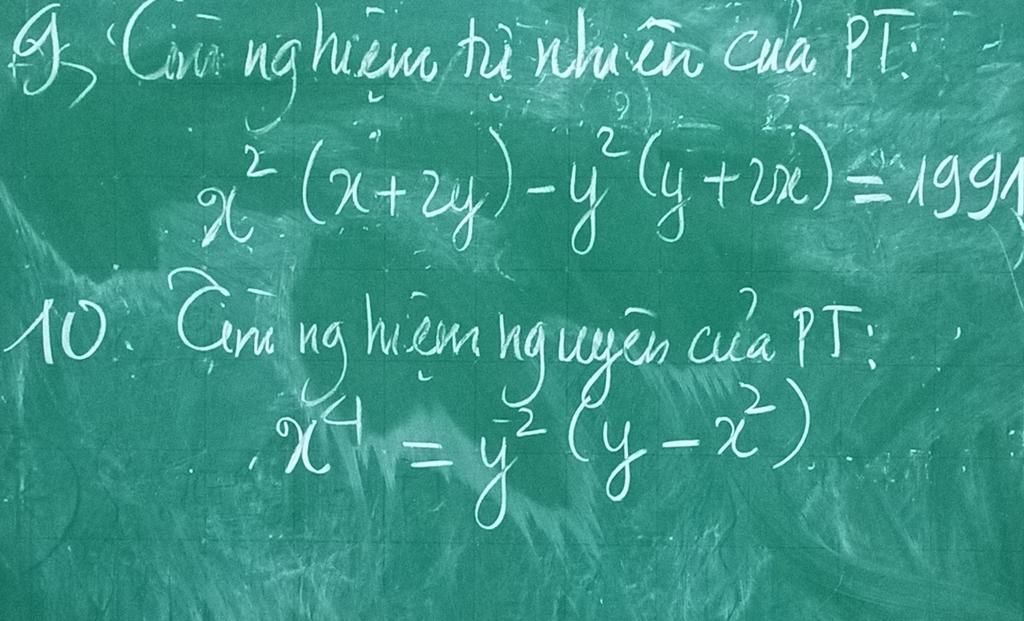 9, Tìm nghiệm tự nhiên của PT:
x² (x + 2y) - y² (y + 2x) = 1991
10. Tìm nghiệm nguyên của PT:
x⁴ = y² (y - x²)